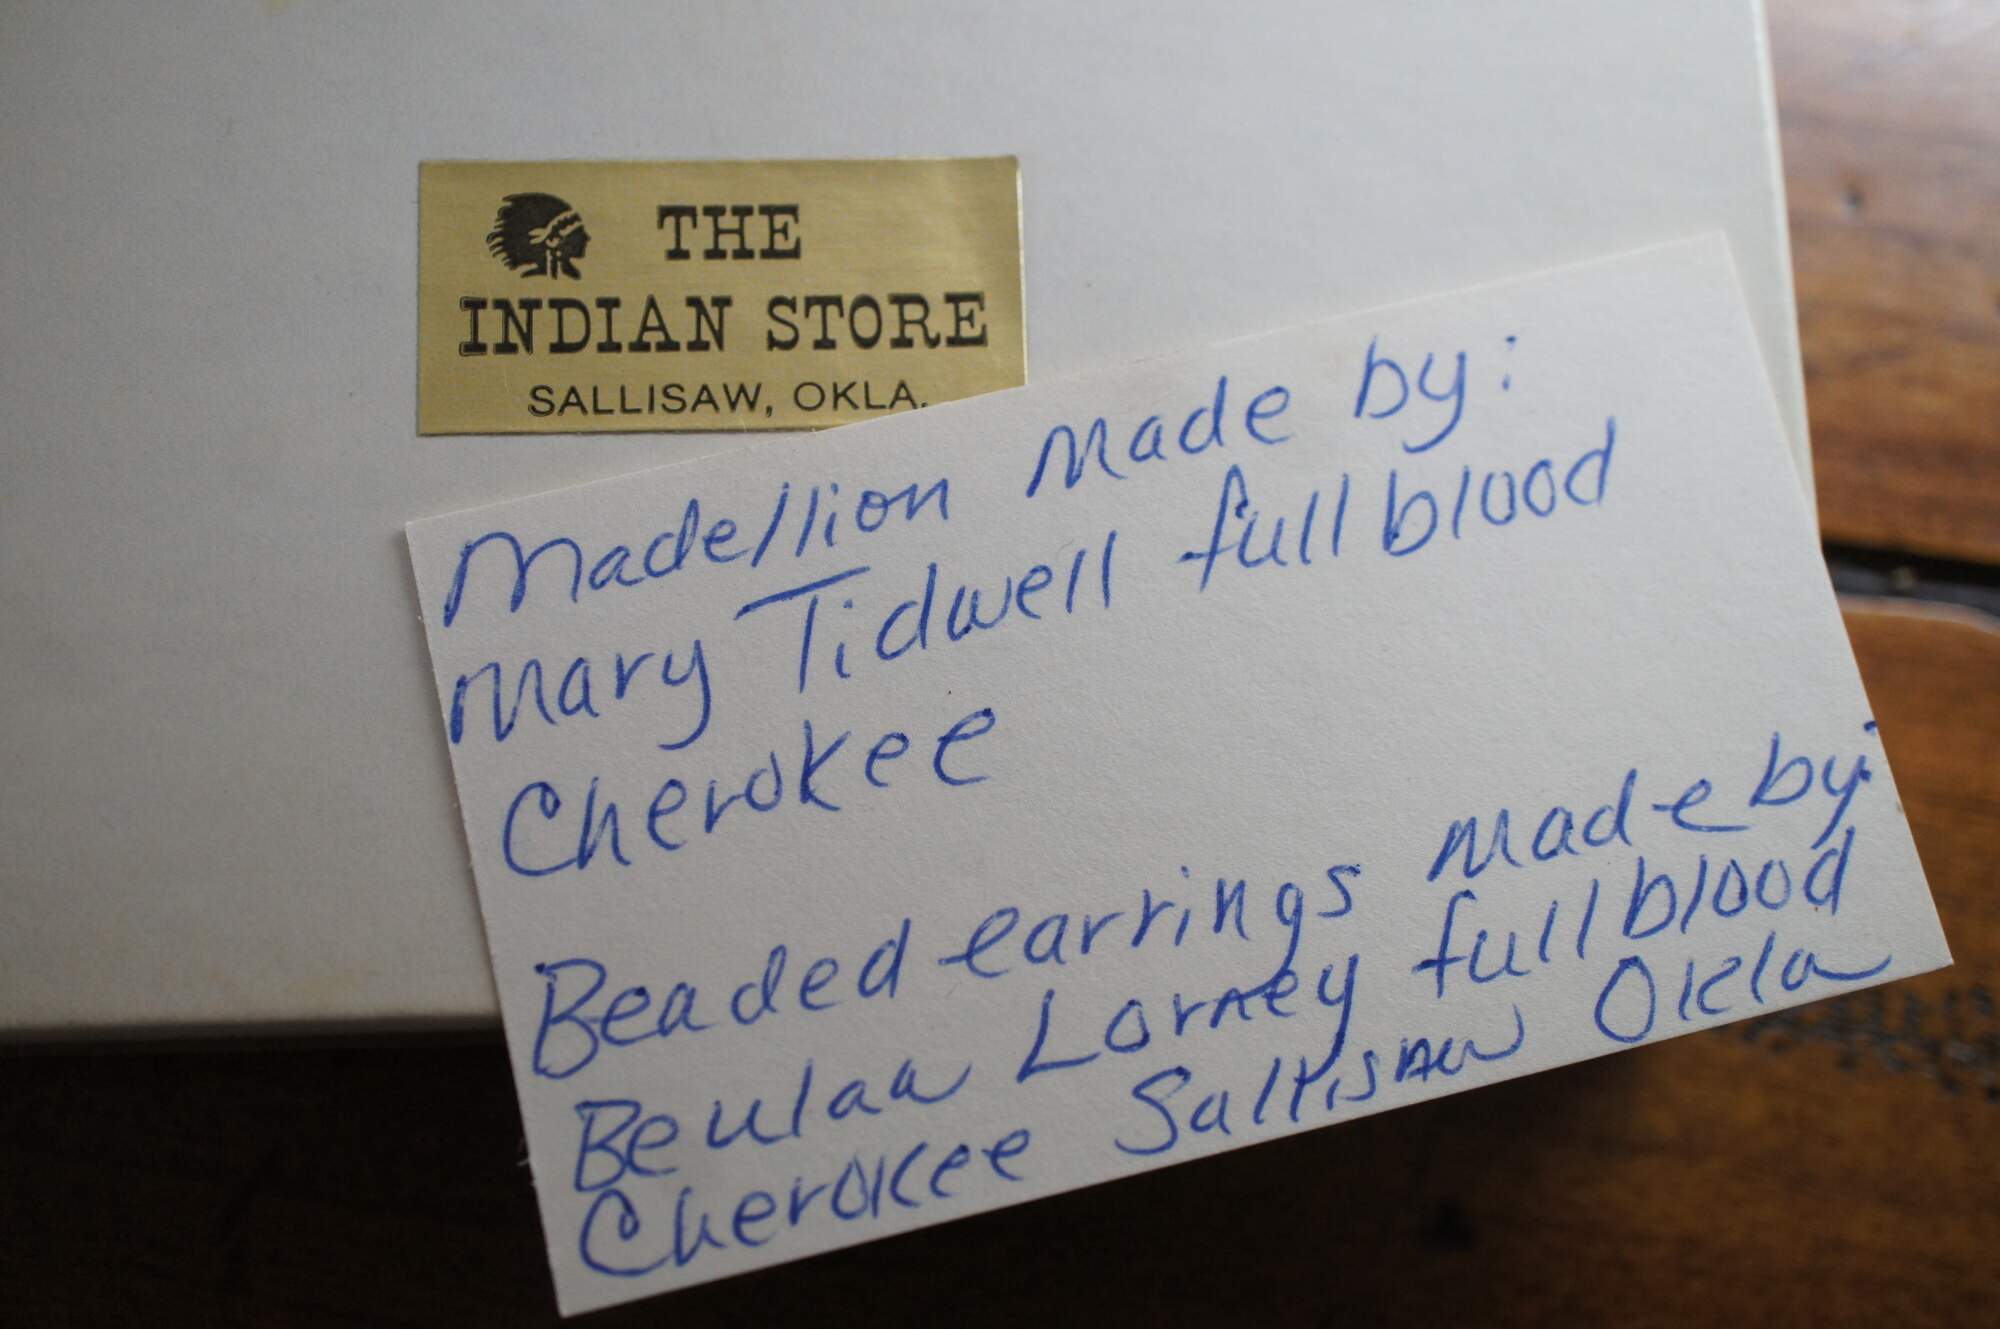 THE
INDIAN STORE
SALLISAW, OKLA.
Madellion Made by:
Mary Tidwell full blood
Cherokee
Beaded earrings made by:
Beulaa Lorney full blood
Cherokee Sallisaw Okla